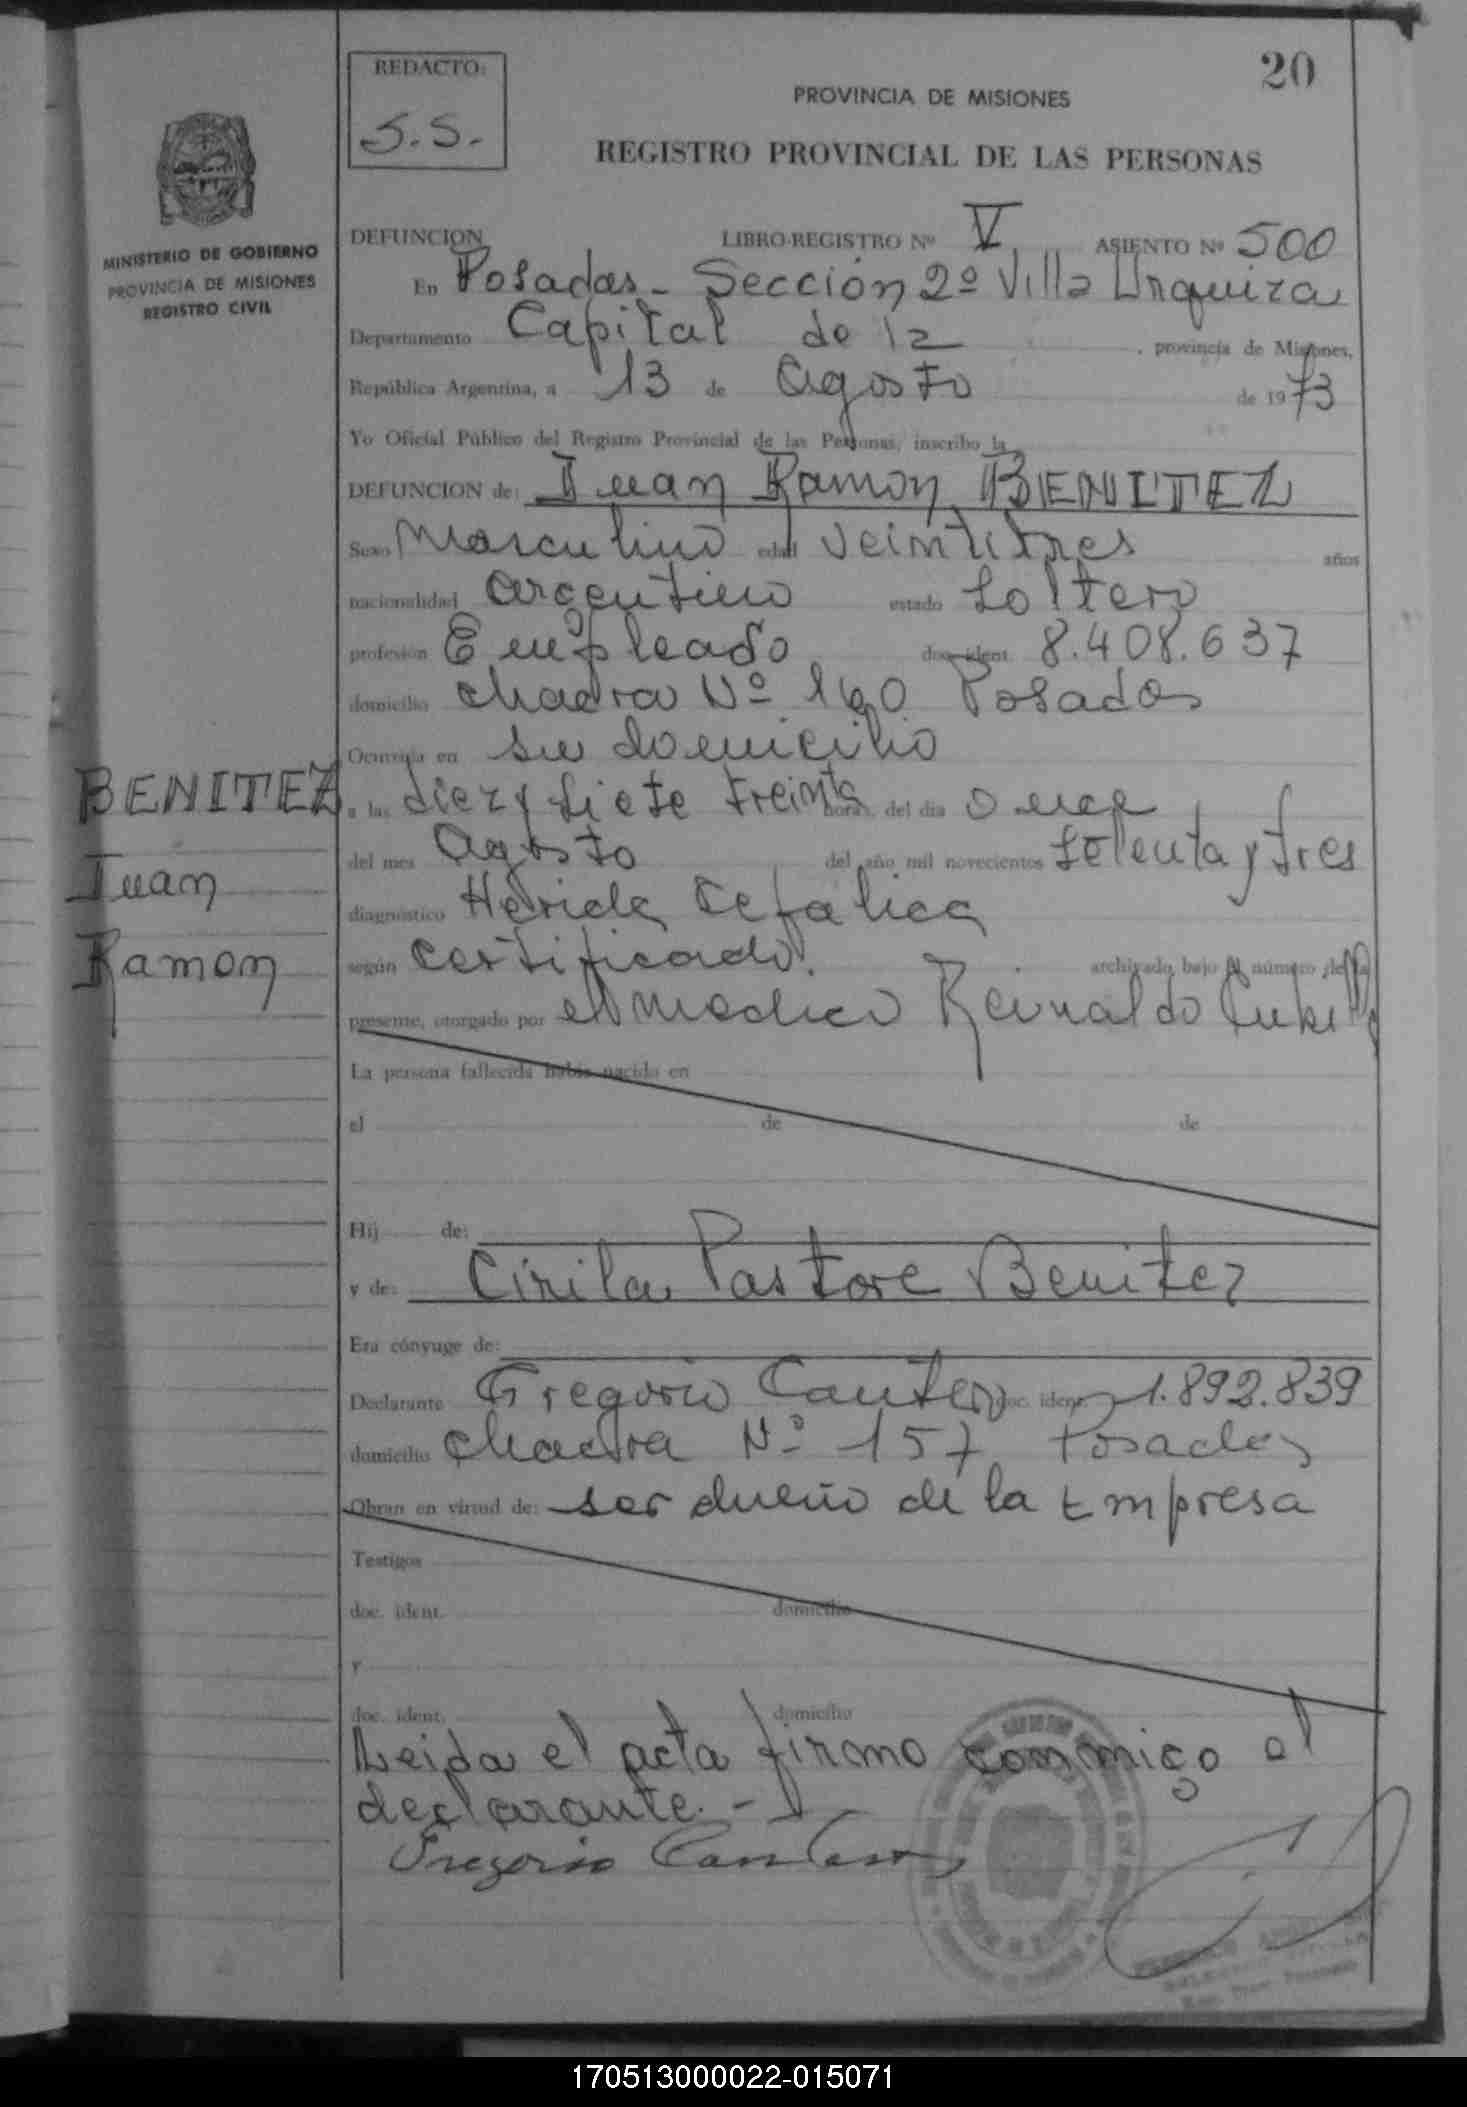 20
REDACTO:
S.S.
PROVINCIA DE MISIONES
REGISTRO PROVINCIAL DE LAS PERSONAS
MINISTERIO DE GOBIERNO
PROVINCIA DE MISIONES
REGISTRO CIVIL
DEFUNCION LIBRO-REGISTRO Nº V ASIENTO Nº 500
En Posadas - Sección 2º Villa Urquiza
Departamento Capital de la , provincia de Misiones,
República Argentina, a 13 de Agosto de 1973
Yo Oficial Público del Registro Provincial de las Personas, inscribo la
DEFUNCION de: Juan Ramon BENITEZ
Sexo Masculino edad veintitres años
nacionalidad argentino estado Soltero
profesión Empleado doc. ident. 8.408.637
domicilio chacra Nº 160 Posadas
Ocurrida en su domicilio
BENITEZ
Juan
Ramon
a las diez y siete treinta horas, del día once
del mes Agosto del año mil novecientos setenta y tres
diagnóstico Herida Cefalica
según certificado archivado bajo el número de la
presente, otorgado por el medico Reinaldo
La persona fallecida había nacido en
el de de
Hij de:
y de: Cirila Pastore Benitez
Era cónyuge de:
Declarante Gregorio Cantero doc. ident. 1.892.839
domicilio chacra Nº 157 Posadas
Obran en virtud de: ser dueño de la Empresa
Testigos
doc. ident. domicilio
y
doc. ident. domicilio
Leida el acta firmo conmigo el
declarante. -
Gregorio Cantero
170513000022-015071